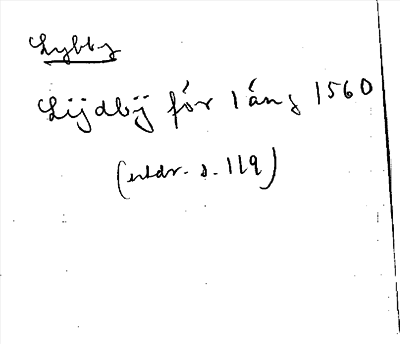 Lybby
Lijdbÿ för 1 áng 1560
(utdr. s. 119)